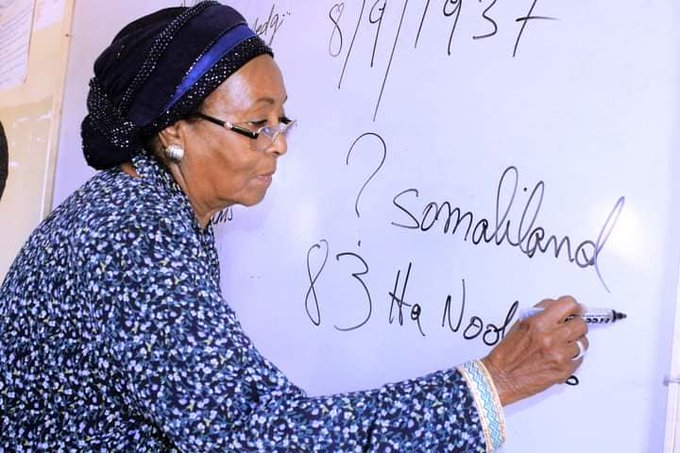 8/9/1937
?
Somaliland
83 Ha Nool